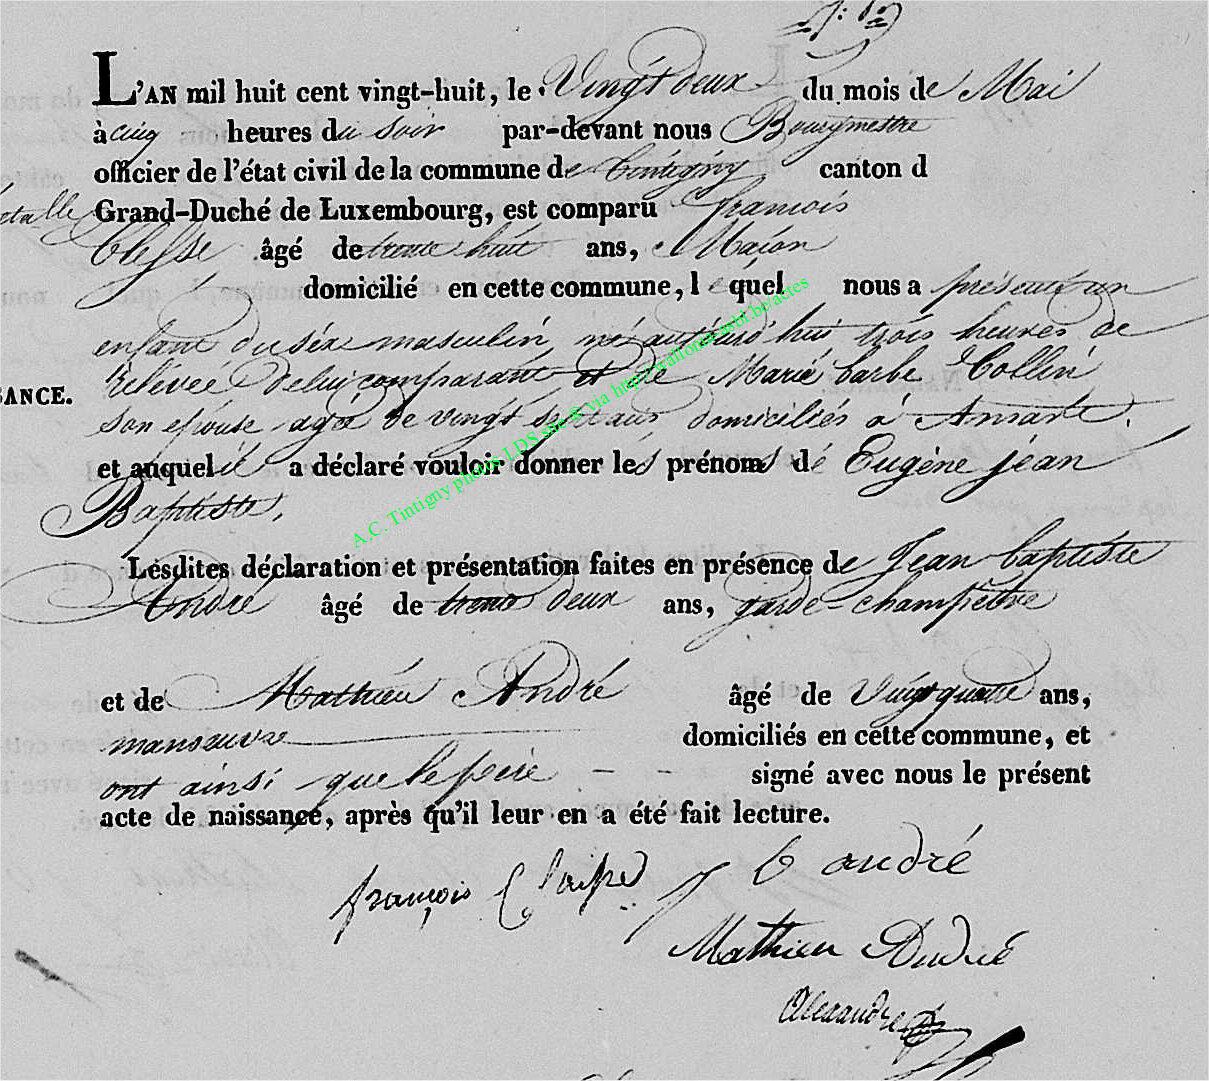 L'AN mil huit cent vingt-huit, le Vingt deux du mois de Mai
à cinq heures du soir par-devant nous Bourgmestre
officier de l'état civil de la commune de Tintigny canton d
Grand-Duché de Luxembourg, est comparu francois
âgé de trente huit ans, Maçon
domicilié en cette commune, lequel nous a présenté un
enfant du séxe masculin, né aujourd'hui trois heures de
relévée de lui comparant et de Marie barbe Collin
SANCE.
son epouse agée de vingt sept ans domiciliés à Ansart.
et auquel il a déclaré vouloir donner les prénoms dé Eugène jéan
Baptiste,
Lesdites déclaration et présentation faites en présence de Jean baptiste
André âgé de trente deux ans, garde-champêtre
et de Mathieu André âgé de Vingt quatre ans,
manoeuvre domiciliés en cette commune, et
ont ainsi que le père signé avec nous le présent
acte de naissance, après qu'il leur en a été fait lecture.
françois
J b andré
Mathieu André
Alexandre
A.C. Tintigny photos LDS